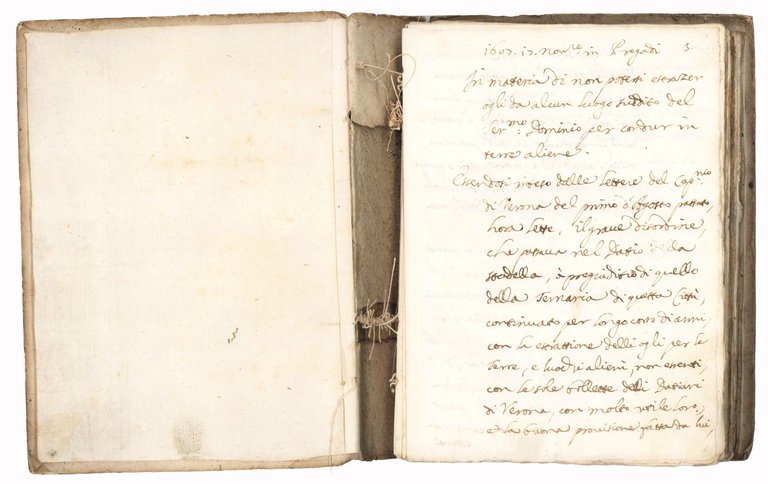 1607. 17. Nov.re in Pregadi 3
In materia di non potersi estrazer
ogli da alcun luogo suddito del
Ser.mo Dominio per condur in
terre aliene.
Essendosi inteso dalle lettere del Cap.nio
di Verona del primo d'Agosto passato,
hora lette, il grave disordine,
che passava nel Datio della
Stadella, à pregiuditio di quello
della Ternaria di questa Città,
continuato per longo corso di anni,
con la estrattione delli ogli per le
terre, e luochi alieni, non essenti,
con le sole bollette delli Datiari
di Verona, con molto utile loro,
e la buona provisione fatta da lui,